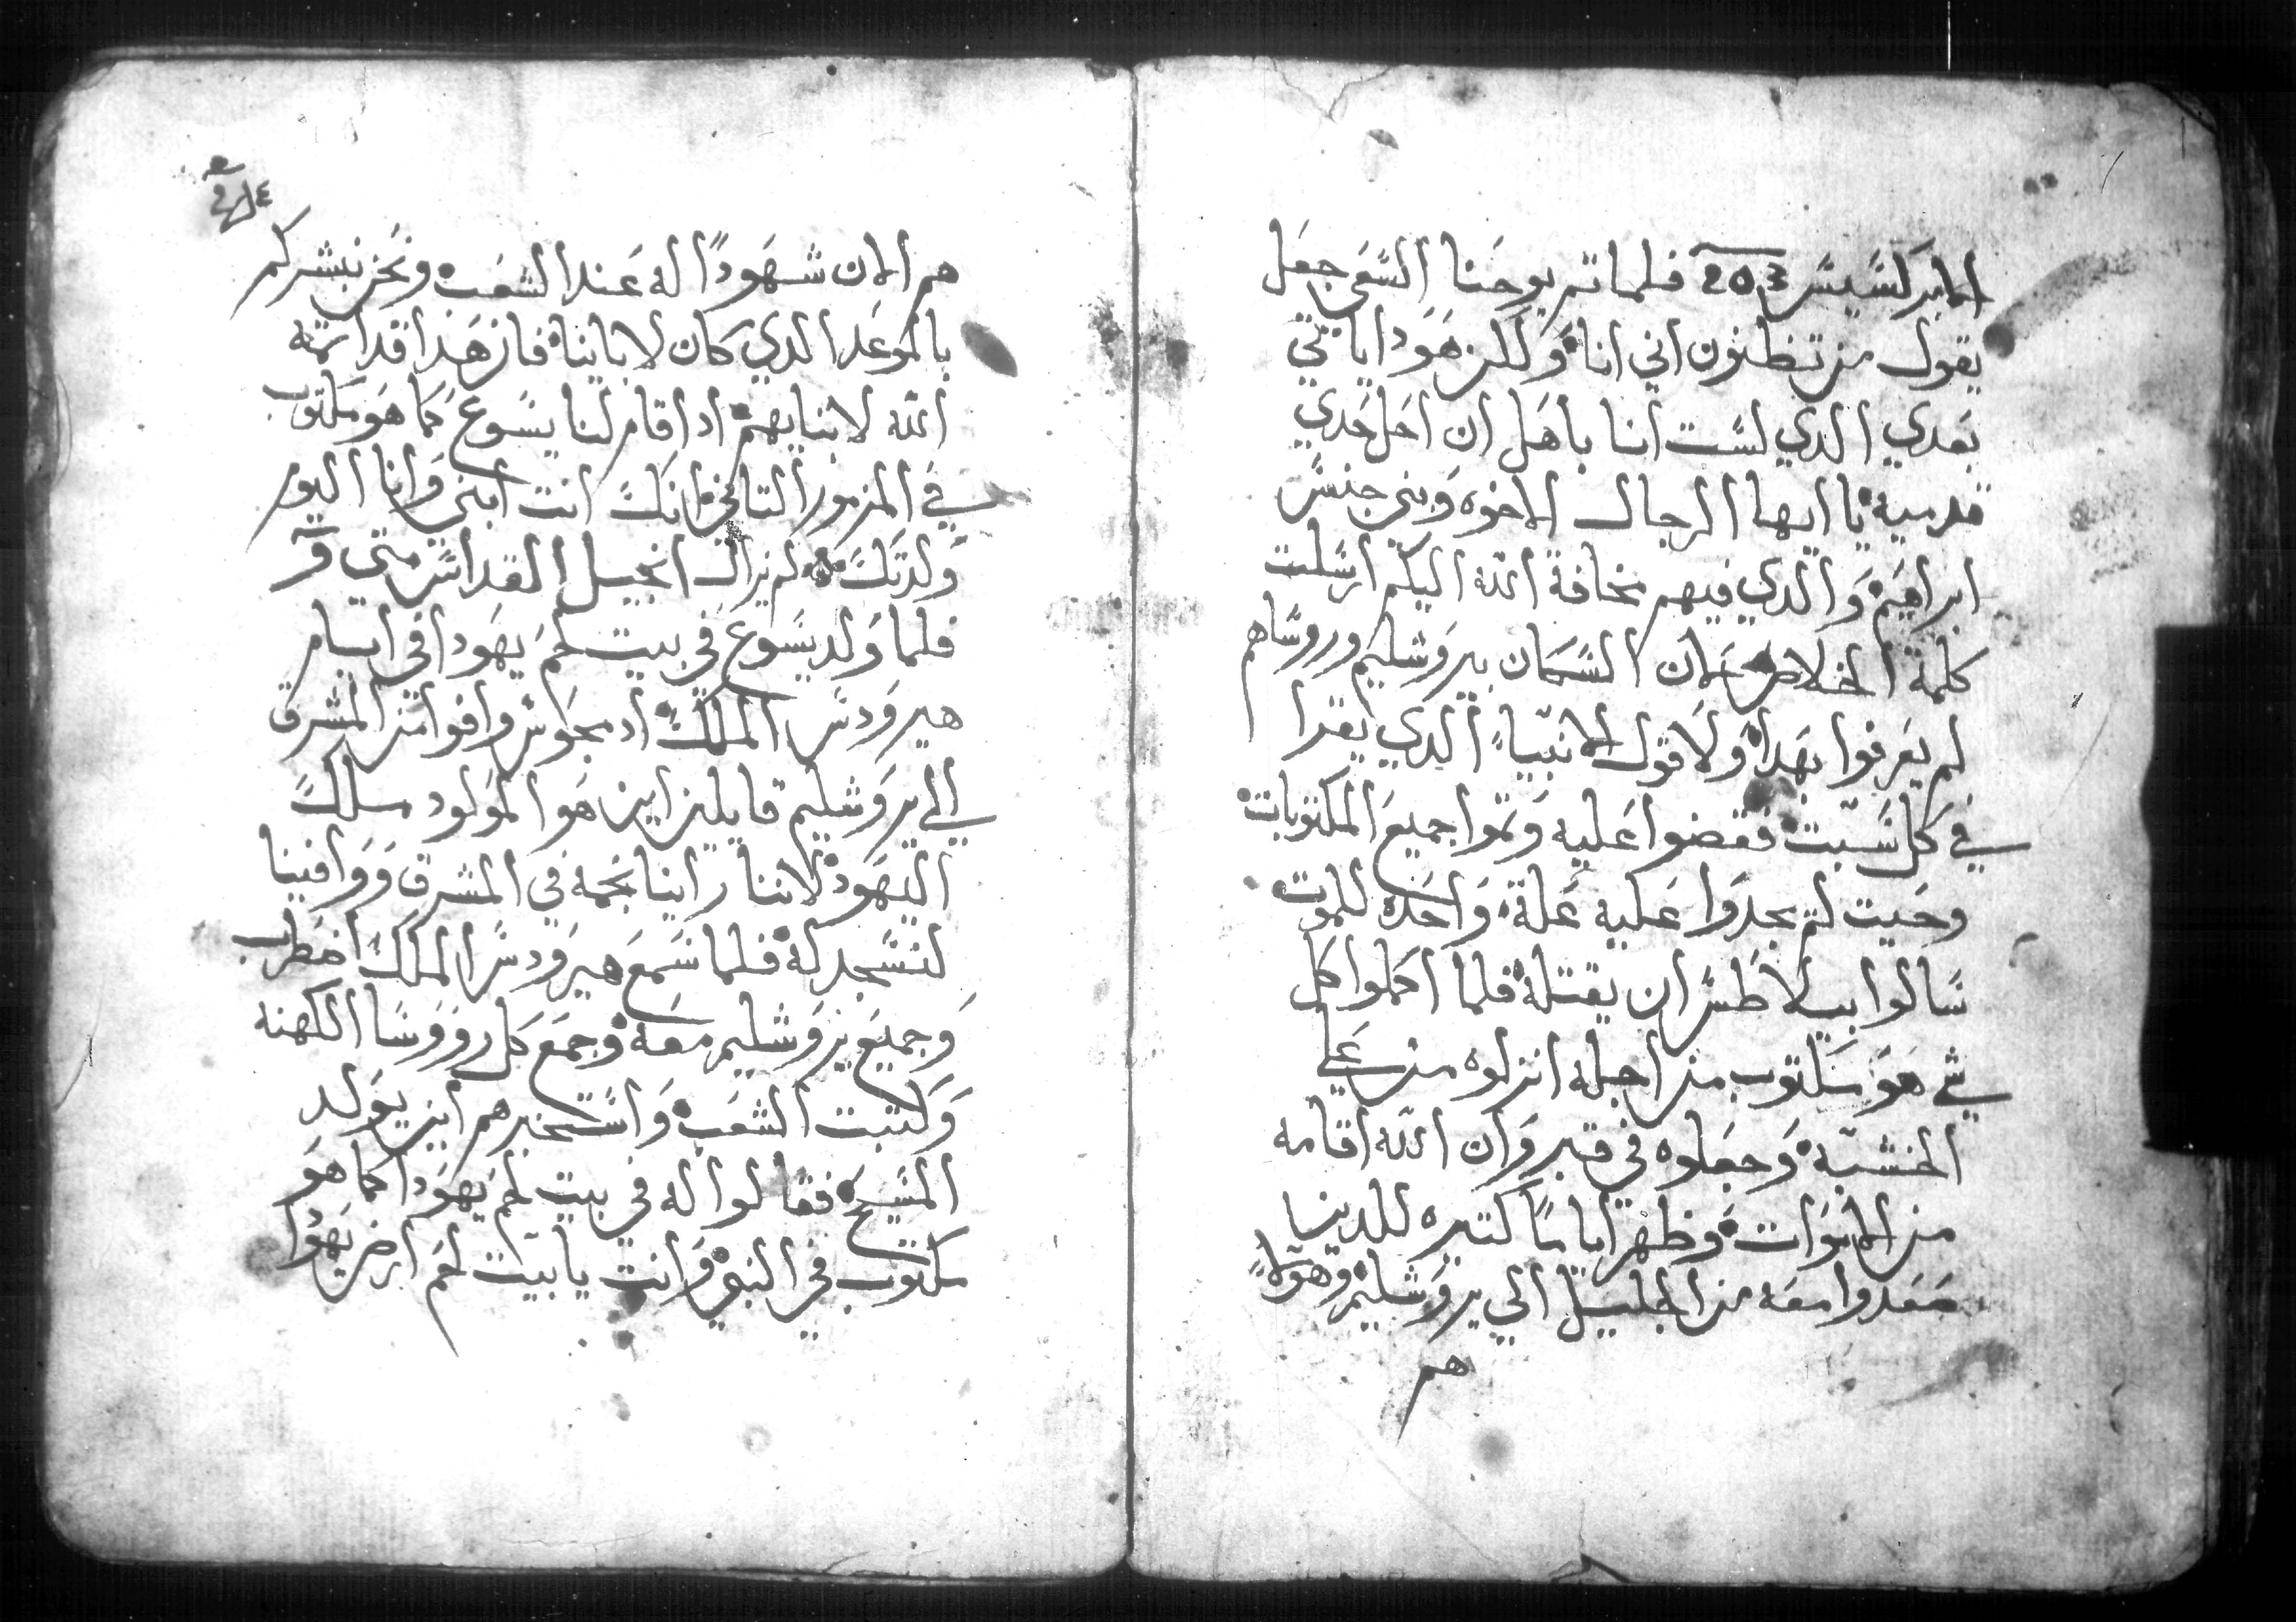 الابركسيس فلما تم يوحنا السعي جعل
يقول من تظنون اني انا ولكن هودا ياتي
بعدي الدي لست انا باهل ان احل حدي
قدميه يا ايها الرجال الاخوه وبني جنس
ابراهيم والدي فيهم مخافة الله اليكم ارسلت
كلمة الخلاص لان السكان بيروشليم وروساهم
لم يعرفوا بهدا ولا قول الانبياء الدي يقرا
في كل سبت فقضوا عليه وتموا جميع المكتوبات
وحيت لم يجدوا عليه علة واحده للموت
سالوا بيلاطس ان يقتله فلما اكملوا كل
شي هو مكتوب من اجله انزلوه من علي
الخشبة وجعلوه في قبر وان الله اقامه
من الاموات وظهر اياما كتيره للدين
صعدوا معه من الجليل الي يروشليم وهولاء
هم
هم الان شهودا له عند الشعب ونحن نبشركم
بالموعد الدي كان لاباينا فان هدا قد اتمه
الله لابنايهم اد اقام لنا يسوع كما هو مكتوب
في المزمور التاني انك انت ابني وانا اليوم
ولدتك لم يزال انجيل القداس متي
فلما ولد يسوع في بيت لحم يهودا في ايام
هيرودس الملك اد مجوس وافوا من المشرق
الي يروشليم قايلين اين هو المولود ملك
اليهود لاننا راينا نجمه في المشرق ووافينا
لنسجد له فلما سمع هيرودس الملك اضطرب
وجميع يروشليم معه وجمع كل رووسا الكهنه
وكتبت الشعب واستخبرهم اين يولد
المسيح فقالوا له في بيت لحم يهودا كما هو
مكتوب في النبي وانت يا بيت لحم ارض يهودا